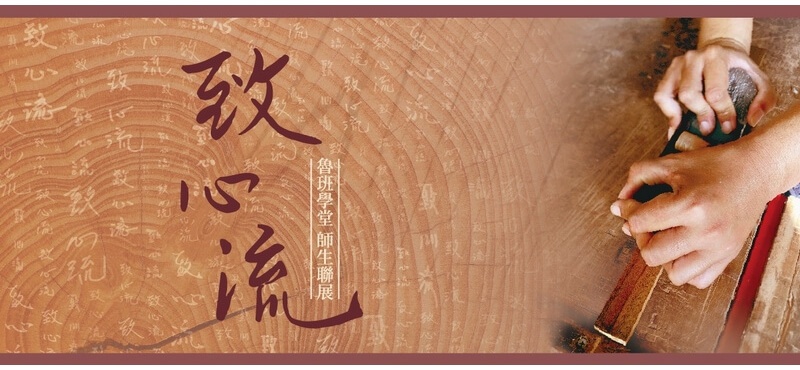 致心流
魯班學堂 師生聯展